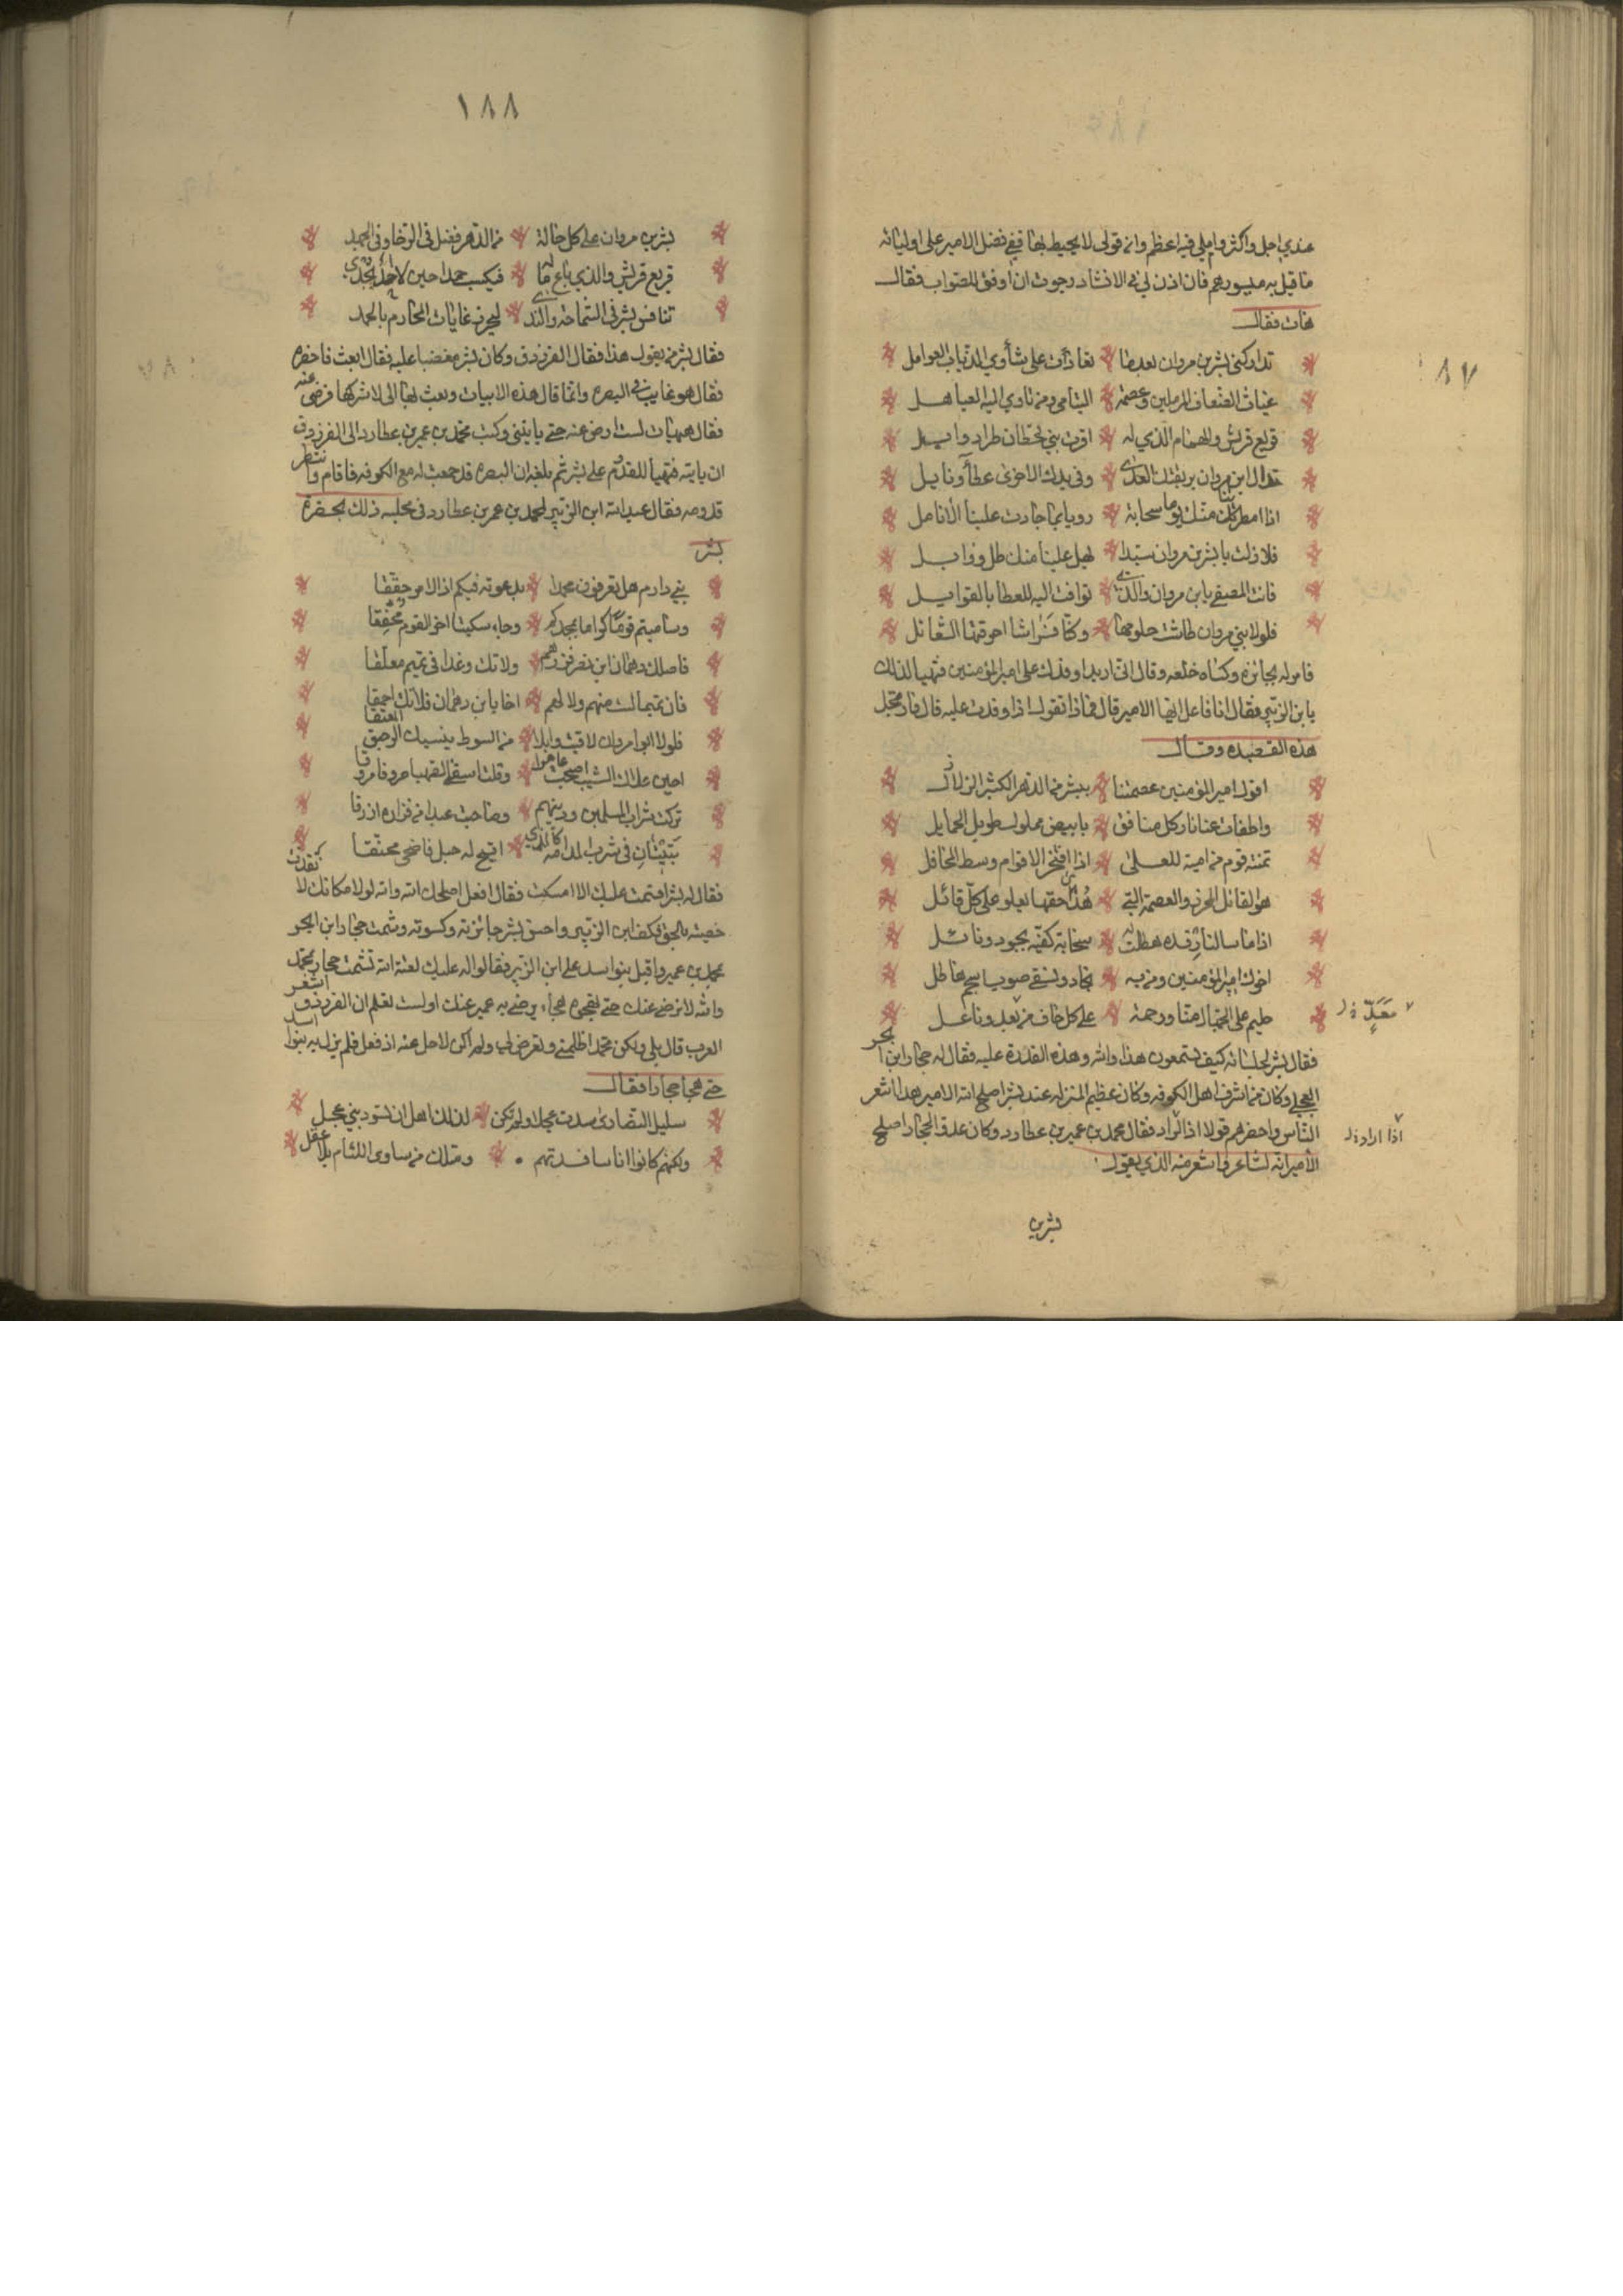 عندي اجل واكثر واملي فيه اعظم وانه قولي لا يحيط بها ففي فضل الامير على اوليائه
ما قيل به ميسورهم فان اذن لي في الانشاد رجوت ان اوفق للصواب فقال
هات فقال
تداركني بشر بن مروان بعدما تعاوت على شلوي الذئاب العوامل
غياث الضعاف المرملين وعصمة اليتامى ومن تاوي اليه العباهل
قريع قريش والهمام الذي له اقرت بني قحطان طرا ووايل
يداك ابن مروان يد تقتل العدى وفي يدك الاخرى عطاء ونايل
اذا امطرتنا منك يوما سحابة روينا بما جادت علينا الانامل
فلا زلت يا بشر بن مروان سيدا يهل علينا منك طل ووابل
فانت المصفى يا ابن مروان والذي توافت اليه للعطا بالقوايل
فلولا بني مروان طاشت حلومها وكنا فراشا احرقتها الشعائل
فامر له بجائزه وكساه خلعه وقال اني اريد اوفدك على امير المؤمنين فتهيا لذلك
يا بن الزبير فقال انا فاعل ايها الامير قال فماذا تقول اذا وفدت عليه قال فارتجل
هذه القصيده وقال
اقول امير المؤمنين عصمتنا ببشر من الدهر الكثير الزلازل
واطفات عنا نار كل منافق بابيض بهلول طويل الحمايل
نمته قوم من امية للعلى اذا افتخر الاقوام وسط المحافل
هو القائل الحزم والعصمة التي هذا حقها يعلو على كل قائل
اذا ما سالنا رفده هطلت له سحابة كفيه بجود ونائل
اخوك امير المؤمنين ومن به نجاد ونسقى صوب اسحم هاطل
حليم على الجهال منا ورحمة على كل حاف من معد وناعل
معدّ
فقال بشر لجلسائه كيف تسمعون هذا والله وهذه القدرة عليه فقال له حجار ابن ابحر
العجلي وكان من اشرف اهل الكوفه وكان عظيم المنزله عند بشر اصلح الله الامير هذا اشعر
الناس واحضرهم قولا اذا اراد فقال محمد بن عمير بن عطارد وكان عدوا لحجار اصلح
اذا اراد
الامير انه لشاعر واشعر منه الذي يقول
بشر بن
٨٧
١٨٨
بشر بن مروان على كل حالة من الدهر فضل في الرخا وفي الجهد
قريع قريش والذي باع ماله فيكسب حمدا حين لا احد يجدي
تنافس بشر في السماحة والندى ليحرز غايات المكارم بالحمد
فقال بشر من يقول هذا فقال الفرزدق وكان بشر مغضبا عليه فقال ابعث فاحضره
فقال هو غايب في البصره وانما قال هذه الابيات وبعث بها الي لانشركها فرضي عنه
فقال هيهات لست ارضى عنه حتى ياتيني وكتب محمد بن عمير بن عطارد الى الفرزدق
ان ياتيه فتهيا للقدوم على بشر ثم بلغه ان البصره قد جمعت له مع الكوفه فاقام وانتظر
قدومه فقال عبد الله ابن الزبير لمحمد بن عمر بن عطارد في مجلسه ذلك بحضرة
بشر
بني دارم هل تعرفون محمدا بدعوته فيكم اذ الامر حققا
وساميتم قوما كراما بمجدكم وجاء سكيتا اخر القوم مخفقا
فاصلك دهمان ابن نصر فردهم ولا تك وغدا في تميم معلقا
فان تميما لست منهم ولا لهم اخا يا ابن دهمان فلا تك احمقا
فلولا ابو مروان لاقيت وابلا من السوط ينسيك الرحيق المعتقا
احين علاك الشيب اصبحت عاهرا وقلت اسقني الصهباء صرفا مروقا
تركت شراب المسلمين ودينهم وصاحبت عبدا من فزاره ازرقا
تبيتان في شرب المدامة كالذي اتيح له حبل فاضحى مخنقا
فقال له بشر اقسمت عليك الا امسكت فقال افعل اصلحك الله والله لولا مكانك لانفذت
خصيته بالحق فكف ابن الزبير واحسن بشر جائزته وكسوته وشمت حجار ابن ابحر
بمحمد بن عمير واقبل بنو اسد على ابن الزبير فقالوا له عليك لعنة الله تشمت حجار بمحمد
والله لا نرضى عنك حتى تهجوه هجاء يرضى به عمير عنك اولست تعلم ان الفرزدق اشعر
العرب قال بلى ولكن محمد اظلمني وتعرض لي ولم اكن لاحل عنه اذ فعل فلم يزل به بنوا اسد
حتى هجا حجارا فقال
سليل النصارى سدت عجلا ولم تكن لذلك اهل ان تسود بني عجل
ولكنهم كانوا اناسا فسدتهم ومثلك من ساوى اللئام بلا عقل